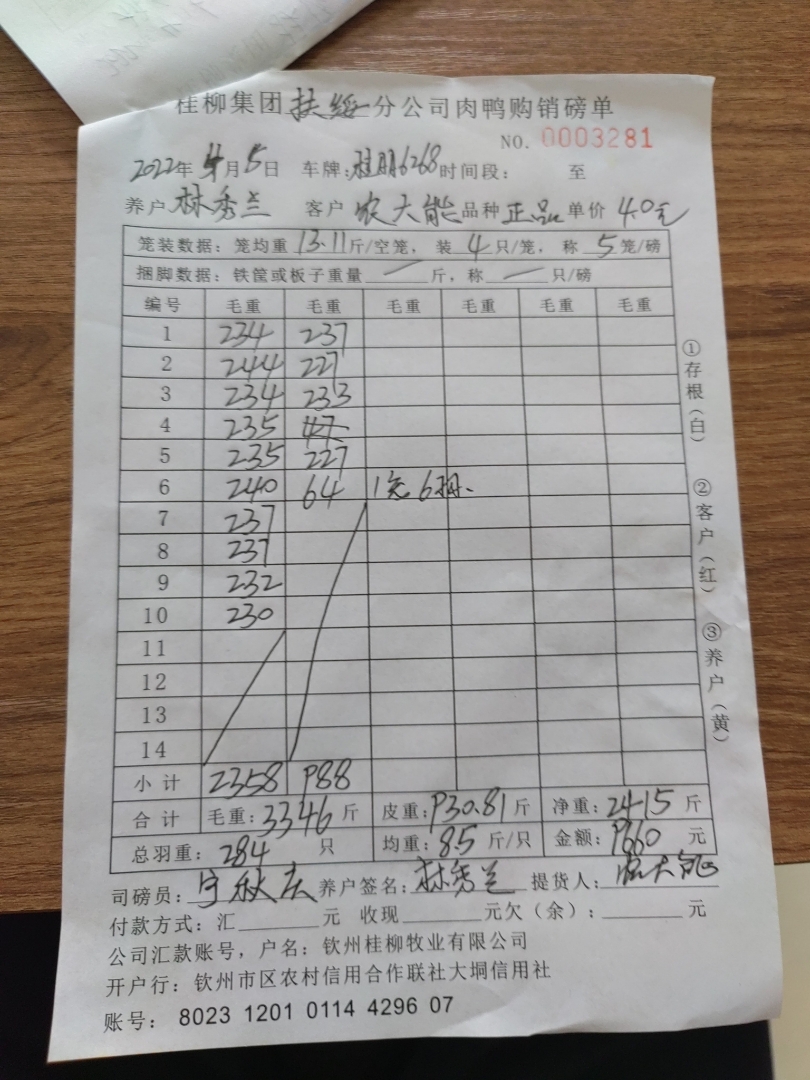 桂柳集团扶绥分公司肉鸭购销磅单
NO. 0003281
2022年4月5日 车牌:桂明6268时间段: 至
养户林秀兰 客户农大能品种正品单价4.0元
笼装数据:笼均重13.11斤/空笼,装4只/笼,称5笼/磅
捆脚数据:铁筐或板子重量 斤,称 只/磅
编号 毛重 毛重 毛重 毛重 毛重 毛重
1 234 237
2 244 227
3 234 233
4 235 47
5 235 227
6 240 64 1笼6拇
7 237
8 237
9 232
10 230
11
12
13
14
小计 2358 988
合计 毛重:3346斤 皮重:930.81斤 净重:2415斤
总羽重:284只 均重:8.5斤/只 金额:9660元
司磅员:宁秋庆 养户签名:林秀兰 提货人:农大能
付款方式:汇 元 收现 元欠(余): 元
公司汇款账号,户名:钦州桂柳牧业有限公司
开户行:钦州市区农村信用合作联社大垌信用社
账号: 8023 1201 0114 4296 07
①存根(白)
②客户(红)
③养户(黄)